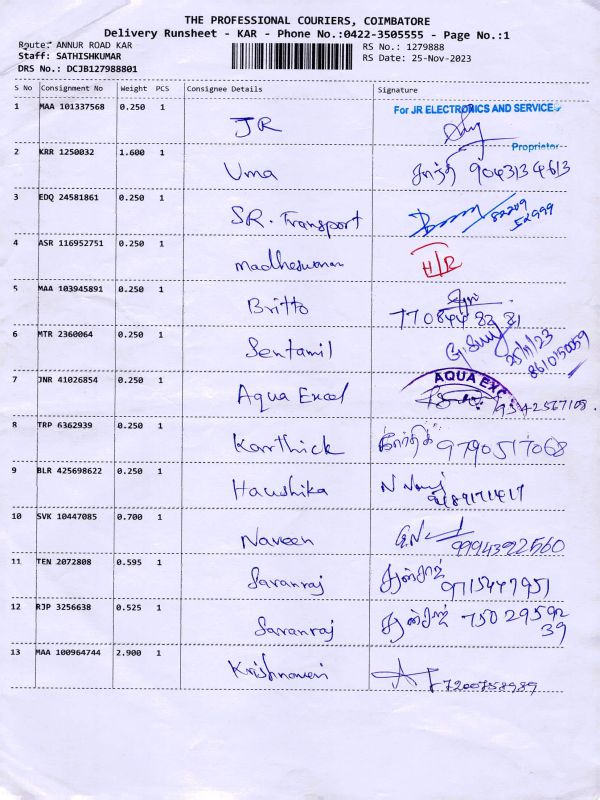 THE PROFESSIONAL COURIERS, COIMBATORE
Delivery Runsheet - KAR - Phone No.:0422-3505555 - Page No.:1
Route: ANNUR ROAD KAR
RS No.: 1279888
Staff: SATHISHKUMAR
RS Date: 25-Nov-2023
DRS No.: DCJB127988801
S No Consignment No Weight PCS Consignee Details Signature
1 MAA 101337568 0.250 1 JR For JR ELECTRONICS AND SERVICE
Proprietor
2 KRR 1250032 1.600 1 Uma சாந்தி 9043134613
3 EDQ 24581861 0.250 1 SR. Transport 82209
52999
4 ASR 116952751 0.250 1 Madheswaran H/R
5 MAA 103945891 0.250 1 Britto 770844 82 21
6 MTR 2360064 0.250 1 Sentamil 25/11/23
8610150059
7 JNR 41026854 0.250 1 Aqua Excel AQUA EXC 9342567108.
8 TRP 6362939 0.250 1 Karthick கார்திக் 9790517068
9 BLR 425698622 0.250 1 Haushika
10 SVK 10447085 0.700 1 Naveen 9994392560
11 TEN 2072808 0.595 1 Saranraj 9715447951
12 RJP 3256638 0.525 1 Saranraj 75029592
39
13 MAA 100964744 2.900 1 Krishnaveni 7200758989